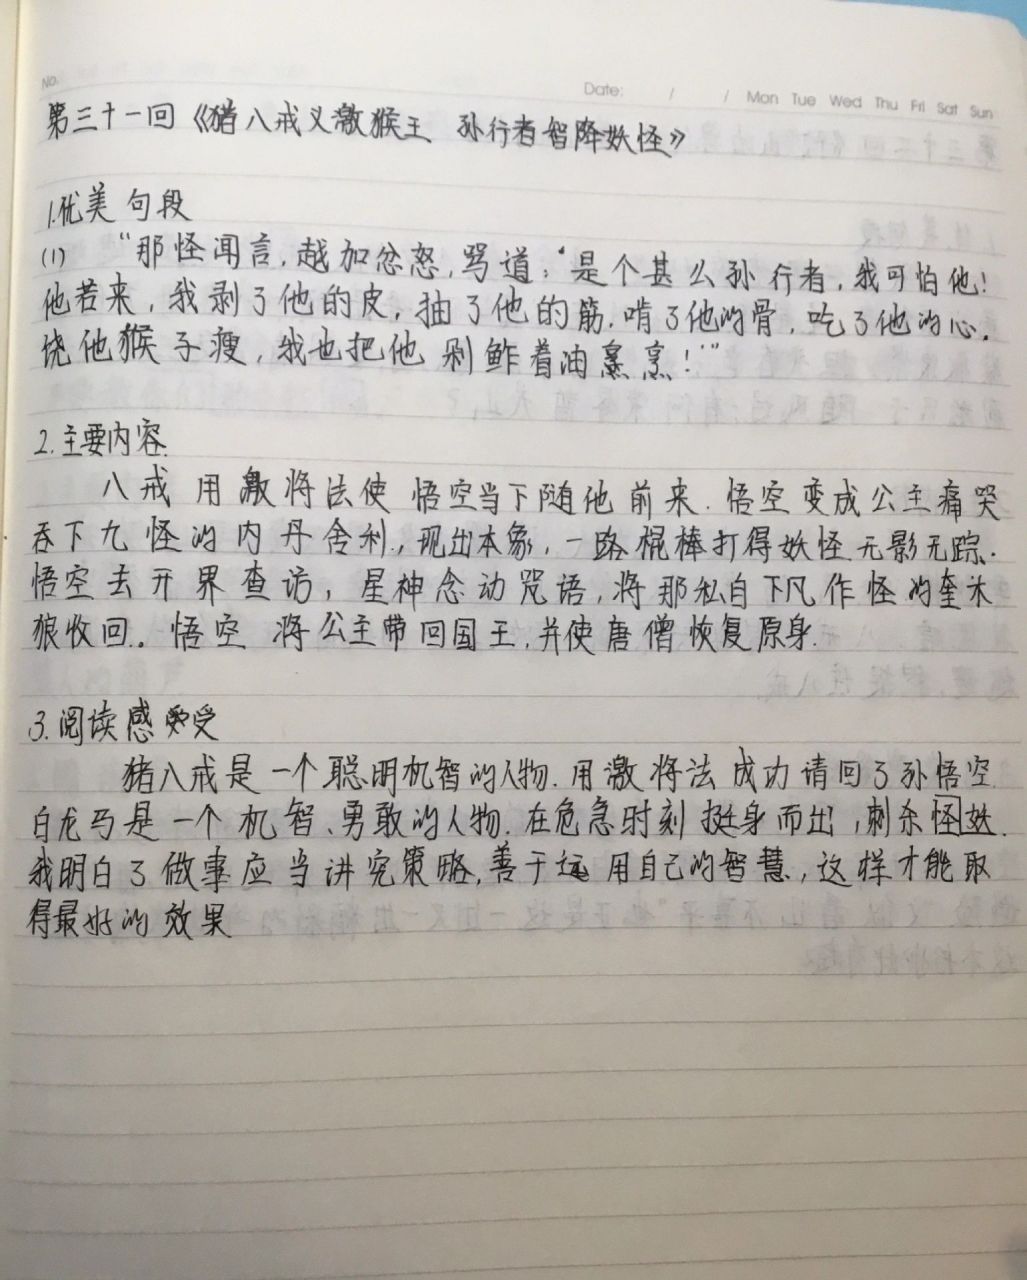 No.
Date: / / Mon Tue Wed Thu Fri Sat Sun
第三十一回《猪八戒义激猴王 孙行者智降妖怪》
1.优美句段
(1) “那怪闻言,越加忿怒,骂道:‘是个甚么孙行者,我可怕他!
他若来,我剥了他的皮,抽了他的筋.啃了他的骨,吃了他的心.
饶他猴子瘦,我也把他剁鲊着油烹!’”
2.主要内容.
八戒用激将法使悟空当下随他前来.悟空变成公主痛哭
吞下九怪的内丹舍利.,现出本象,一路棍棒打得妖怪无影无踪.
悟空去开界查访,星神念动咒语,将那私自下凡作怪的奎木
狼收回。悟空将公主带回国王,并使唐僧恢复原身.
3.阅读感受
猪八戒是一个聪明机智的人物.用激将法成功请回了孙悟空.
白龙马是一个机智、勇敢的人物.在危急时刻挺身而出,刺杀怪妖.
我明白了做事应当讲究策略,善于运用自己的智慧,这样才能取
得最好的效果